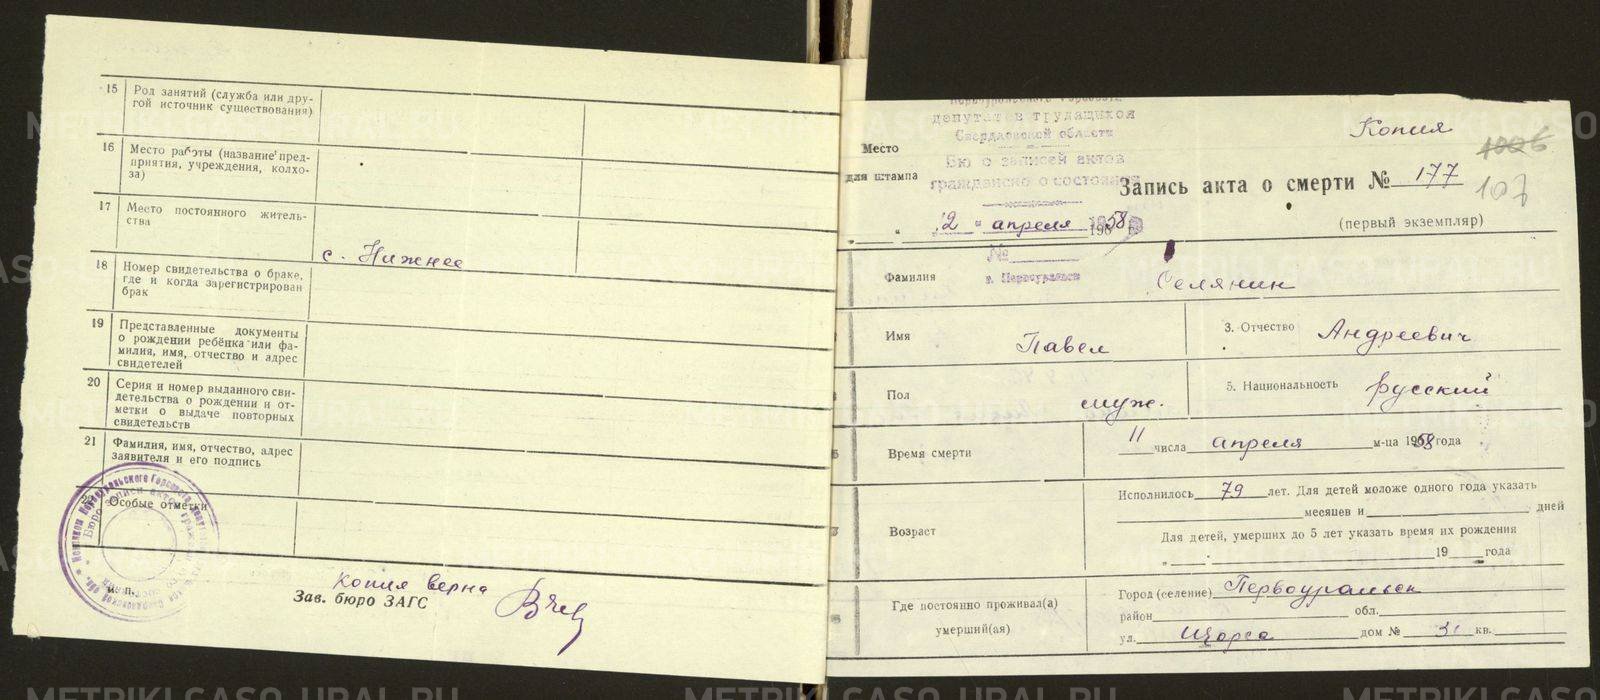 15 Род занятий (служба или дру-
гой источник существования)
16 Место работы (название пред-
приятия, учреждения, колхо-
за)
17 Место постоянного житель-
ства
с. Нижнее
18 Номер свидетельства о браке,
где и когда зарегистрирован
брак
19 Представленные документы
о рождении ребёнка или фа-
милия, имя, отчество и адрес
свидетелей
20 Серия и номер выданного сви-
детельства о рождении и от-
метки о выдаче повторных
свидетельств
21 Фамилия, имя, отчество, адрес
заявителя и его подпись
Особые отметки
Копия верна
Зав. бюро ЗАГС
депутатов трудящихся
Свердловской области
Место
для штампа
Бюро записей актов
гражданского состояния
Копия
1006
107
Запись акта о смерти № 177
(первый экземпляр)
"12" апреля 1958 г.
№
г. Первоуральск
Фамилия Селянин
Имя Павел
3. Отчество Андреевич
Пол муж.
5. Национальность русский
Время смерти
11 числа апреля м-ца 1958 года
Возраст
Исполнилось 79 лет. Для детей моложе одного года указать
месяцев и дней
Для детей, умерших до 5 лет указать время их рождения
" " 19 года
Где постоянно проживал(а)
умерший(ая)
Город (селение) Первоуральск
район обл.
ул. Щорса дом № 31 кв.
METRIKI.GASO-URAL.RU